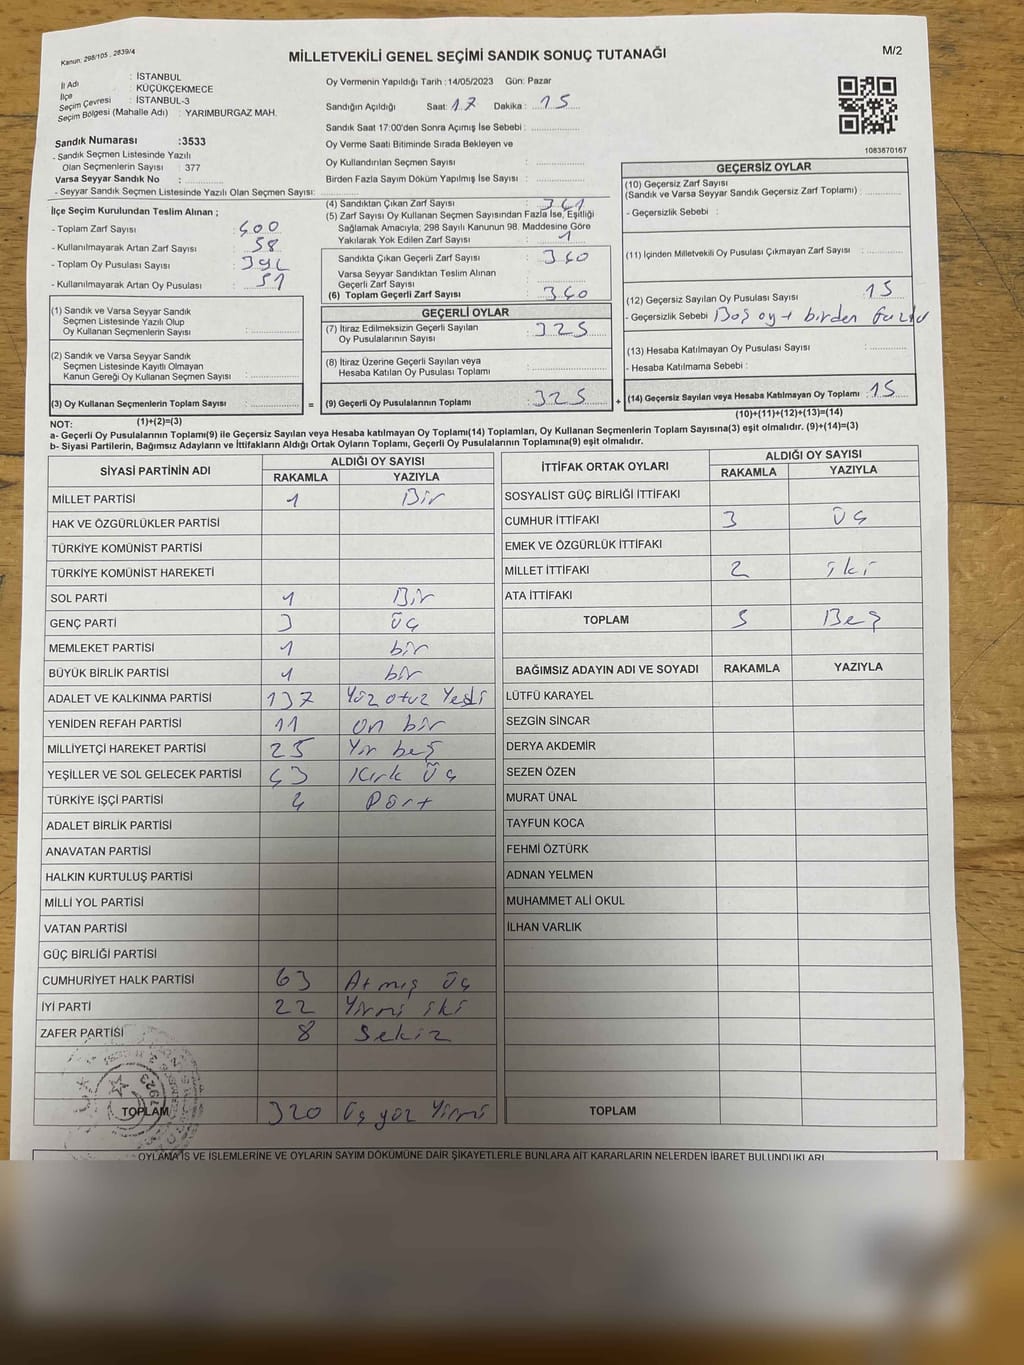 Kanun. 298/105 . 2839/4
MİLLETVEKİLİ GENEL SEÇİMİ SANDIK SONUÇ TUTANAĞI
M/2
İl Adı : İSTANBUL
İlçe : KÜÇÜKÇEKMECE
Seçim Çevresi : İSTANBUL-3
Seçim Bölgesi (Mahalle Adı) : YARIMBURGAZ MAH.
Sandık Numarası :3533
- Sandık Seçmen Listesinde Yazılı
Olan Seçmenlerin Sayısı : 377
Varsa Seyyar Sandık No :
- Seyyar Sandık Seçmen Listesinde Yazılı Olan Seçmen Sayısı:
Oy Vermenin Yapıldığı Tarih : 14/05/2023 Gün: Pazar
Sandığın Açıldığı Saat: 17 Dakika : 15
Sandık Saat 17:00'den Sonra Açımış İse Sebebi :
Oy Verme Saati Bitiminde Sırada Bekleyen ve
Oy Kullandırılan Seçmen Sayısı :
Birden Fazla Sayım Döküm Yapılmış İse Sayısı :
1083670167
İlçe Seçim Kurulundan Teslim Alınan ;
- Toplam Zarf Sayısı : 400
- Kullanılmayarak Artan Zarf Sayısı : 58
- Toplam Oy Pusulası Sayısı :
- Kullanılmayarak Artan Oy Pusulası : 51
(1) Sandık ve Varsa Seyyar Sandık
Seçmen Listesinde Yazılı Olup
Oy Kullanan Seçmenlerin Sayısı :
(2) Sandık ve Varsa Seyyar Sandık
Seçmen Listesinde Kayıtlı Olmayan
Kanun Gereği Oy Kullanan Seçmen Sayısı :
(3) Oy Kullanan Seçmenlerin Toplam Sayısı : =
(1)+(2)=(3)
(4) Sandıktan Çıkan Zarf Sayısı : 341
(5) Zarf Sayısı Oy Kullanan Seçmen Sayısından Fazla İse, Eşitliği
Sağlamak Amacıyla, 298 Sayılı Kanunun 98. Maddesine Göre
Yakılarak Yok Edilen Zarf Sayısı : 1
Sandıkta Çıkan Geçerli Zarf Sayısı : 340
Varsa Seyyar Sandıktan Teslim Alınan
Geçerli Zarf Sayısı :
(6) Toplam Geçerli Zarf Sayısı : 340
GEÇERLİ OYLAR
(7) İtiraz Edilmeksizin Geçerli Sayılan
Oy Pusulalarının Sayısı : 325
(8) İtiraz Üzerine Geçerli Sayılan veya
Hesaba Katılan Oy Pusulası Toplamı :
(9) Geçerli Oy Pusulalarının Toplamı : 325 +
GEÇERSİZ OYLAR
(10) Geçersiz Zarf Sayısı
(Sandık ve Varsa Seyyar Sandık Geçersiz Zarf Toplamı) :
- Geçersizlik Sebebi :
(11) İçinden Milletvekili Oy Pusulası Çıkmayan Zarf Sayısı :
(12) Geçersiz Sayılan Oy Pusulası Sayısı : 15
- Geçersizlik Sebebi : Boş oy + birden fazla
(13) Hesaba Katılmayan Oy Pusulası Sayısı :
- Hesaba Katılmama Sebebi :
(14) Geçersiz Sayılan veya Hesaba Katılmayan Oy Toplamı : 15
(10)+(11)+(12)+(13)=(14)
NOT:
a- Geçerli Oy Pusulalarının Toplamı(9) ile Geçersiz Sayılan veya Hesaba katılmayan Oy Toplamı(14) Toplamları, Oy Kullanan Seçmenlerin Toplam Sayısına(3) eşit olmalıdır. (9)+(14)=(3)
b- Siyasi Partilerin, Bağımsız Adayların ve İttifakların Aldığı Ortak Oyların Toplamı, Geçerli Oy Pusulalarının Toplamına(9) eşit olmalıdır.
SİYASİ PARTİNİN ADI ALDIĞI OY SAYISI
RAKAMLA YAZIYLA
MİLLET PARTİSİ 1 Bir
HAK VE ÖZGÜRLÜKLER PARTİSİ
TÜRKİYE KOMÜNİST PARTİSİ
TÜRKİYE KOMÜNİST HAREKETİ
SOL PARTİ 1 Bir
GENÇ PARTİ 3 üç
MEMLEKET PARTİSİ 1 bir
BÜYÜK BİRLİK PARTİSİ 1 bir
ADALET VE KALKINMA PARTİSİ 137 Yüz otuz Yedi
YENİDEN REFAH PARTİSİ 11 on bir
MİLLİYETÇİ HAREKET PARTİSİ 25 Yir beş
YEŞİLLER VE SOL GELECEK PARTİSİ 43 Kırk Üç
TÜRKİYE İŞÇİ PARTİSİ 4 Dört
ADALET BİRLİK PARTİSİ
ANAVATAN PARTİSİ
HALKIN KURTULUŞ PARTİSİ
MİLLİ YOL PARTİSİ
VATAN PARTİSİ
GÜÇ BİRLİĞİ PARTİSİ
CUMHURİYET HALK PARTİSİ 63 Atmış üç
İYİ PARTİ 22 Yirmi iki
ZAFER PARTİSİ 8 Sekiz
TOPLAM 320 Üç yüz Yirmi
İTTİFAK ORTAK OYLARI ALDIĞI OY SAYISI
RAKAMLA YAZIYLA
SOSYALİST GÜÇ BİRLİĞİ İTTİFAKI
CUMHUR İTTİFAKI 3 Üç
EMEK VE ÖZGÜRLÜK İTTİFAKI
MİLLET İTTİFAKI 2 iki
ATA İTTİFAKI
TOPLAM 5 Beş
BAĞIMSIZ ADAYIN ADI VE SOYADI RAKAMLA YAZIYLA
LÜTFÜ KARAYEL
SEZGİN SİNCAR
DERYA AKDEMİR
SEZEN ÖZEN
MURAT ÜNAL
TAYFUN KOCA
FEHMİ ÖZTÜRK
ADNAN YELMEN
MUHAMMET ALİ OKUL
İLHAN VARLIK
TOPLAM
OYLAMA İŞ VE İŞLEMLERİNE VE OYLARIN SAYIM DÖKÜMÜNE DAİR ŞİKAYETLERLE BUNLARA AİT KARARLARIN NELERDEN İBARET BULUNDUKLARI